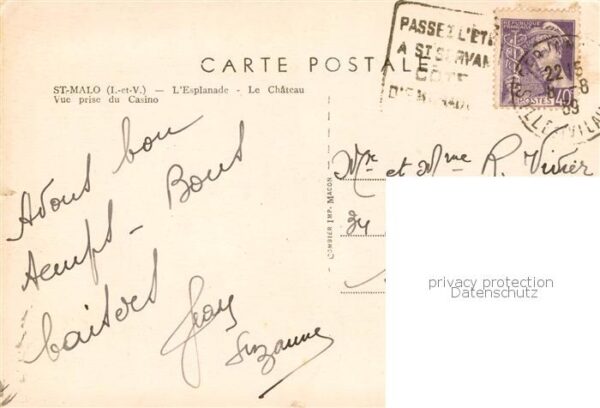 CARTE POSTALE
ST-MALO (I.-et-V.) — L'Esplanade - Le Château
Vue prise du Casino
PASSEZ L'ÉTÉ
A ST SERVAN
CÔTE
D'EMERAUDE
RÉPUBLIQUE FRANÇAISE
POSTES 40
22 - 8
39
ILLE-ET-VILAINE
Avons bon
temps - Bons
baisers
Suzanne
COMBIER IMP. MACON
Mr et Mme R. Vivier
34
privacy protection
Datenschutz